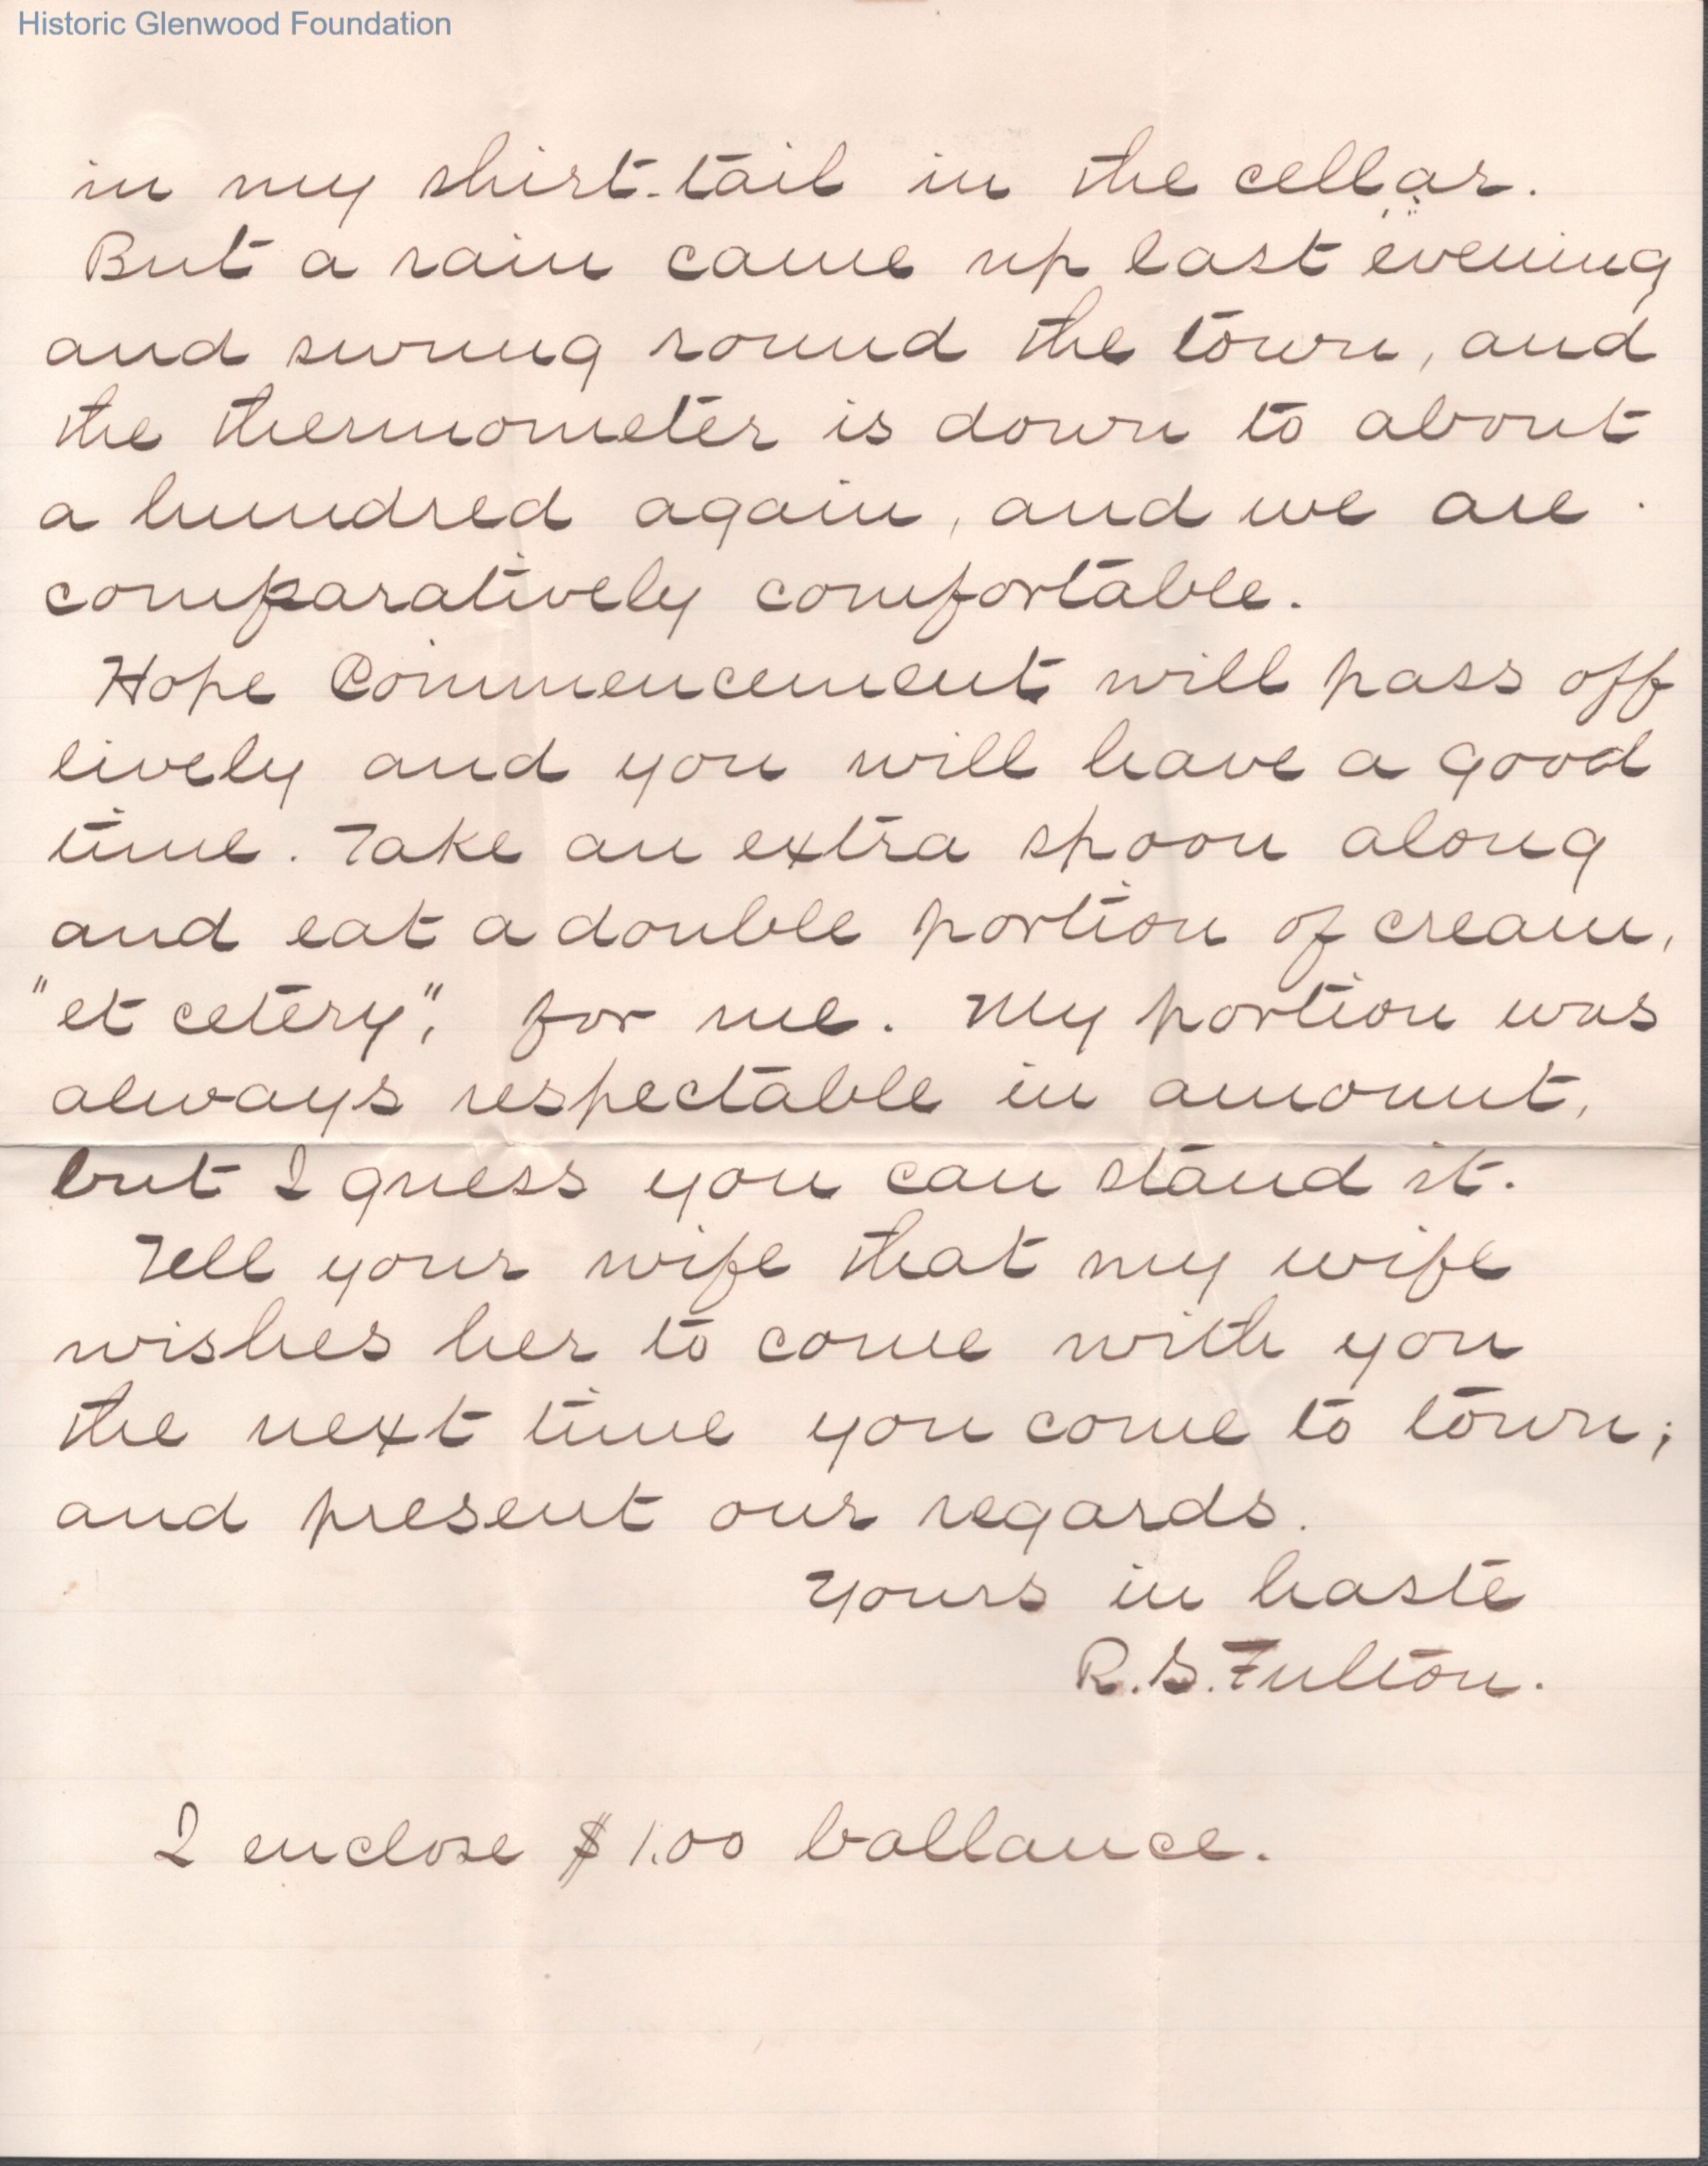 Historic Glenwood Foundation
in my shirt-tail in the cellar.
But a rain came up last evening
and swung round the town, and
the thermometer is down to about
a hundred again, and we are
comparatively comfortable.
Hope Commencement will pass off
lively and you will have a good
time. Take an extra spoon along
and eat a double portion of cream,
"et cetery", for me. My portion was
always respectable in amount,
but I guess you can stand it.
Tell your wife that my wife
wishes her to come with you
the next time you come to town;
and present our regards.
Yours in haste
R. S. Fulton.
I enclose $1.00 ballance.